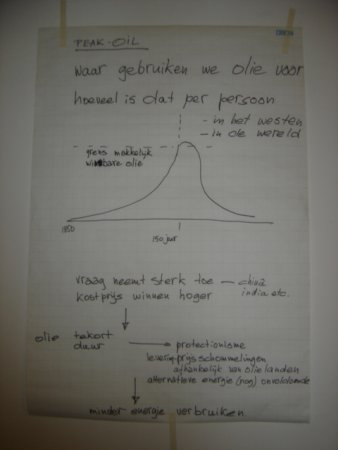 PEAK-OIL
waar gebruiken we olie voor
hoeveel is dat per persoon
- in het westen
- in de wereld
grens makkelijk
winbare olie
1850
150 jaar
vraag neemt sterk toe — china
kostprijs winnen hoger india etc.
olie tekort
duur → protectionisme
levering-prijs schommelingen
afhankelijk van olie landen
alternatieve energie (nog) onvoldoende
minder energie verbruiken